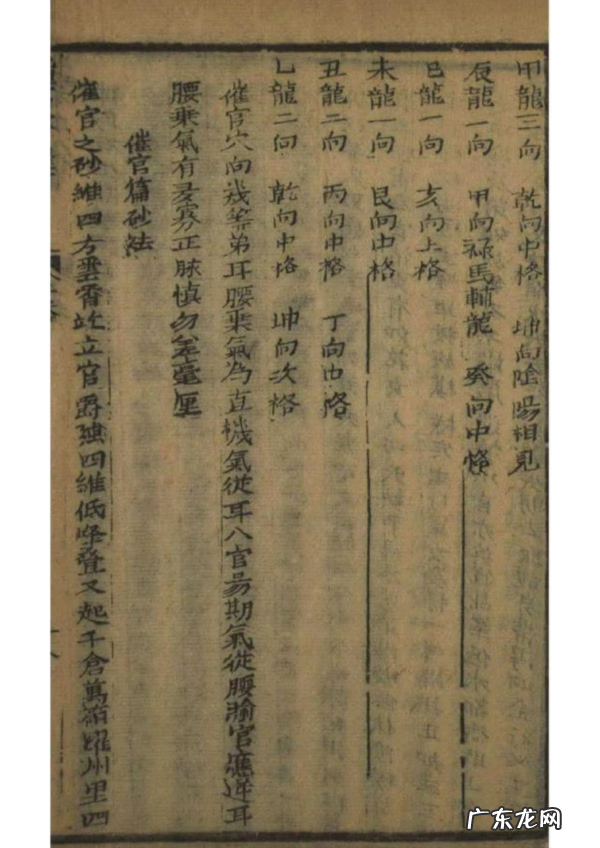 甲龍三向 乾向中格 坤向陰陽相見
辰龍一向 甲向祿馬輔龍 癸向中格
巳龍一向 亥向上格
未龍一向 艮向中格
丑龍二向 丙向中格 丁向中格
乙龍二向 乾向中格 坤向次格
催官穴向幾等第耳腰乘氣為直機氣從耳入官易期氣從腰
官應遲耳
腰乘氣有多寡正脉慎勿差毫厘
催官篇砂法
催官之砂維四方並香竝立官爵 四維低峰疊又起千倉萬箱 州里四
广东龙网